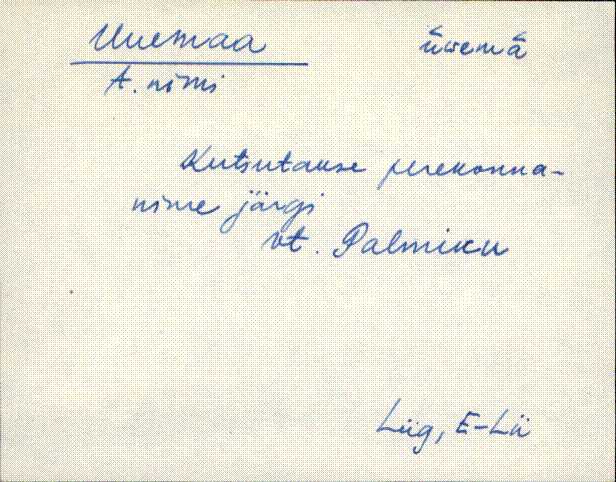 Uuemaa ùwemà
A. nimi
Kutsutakse perekonna-
nime järgi
vt. Palmiku
Liig, E-Lii